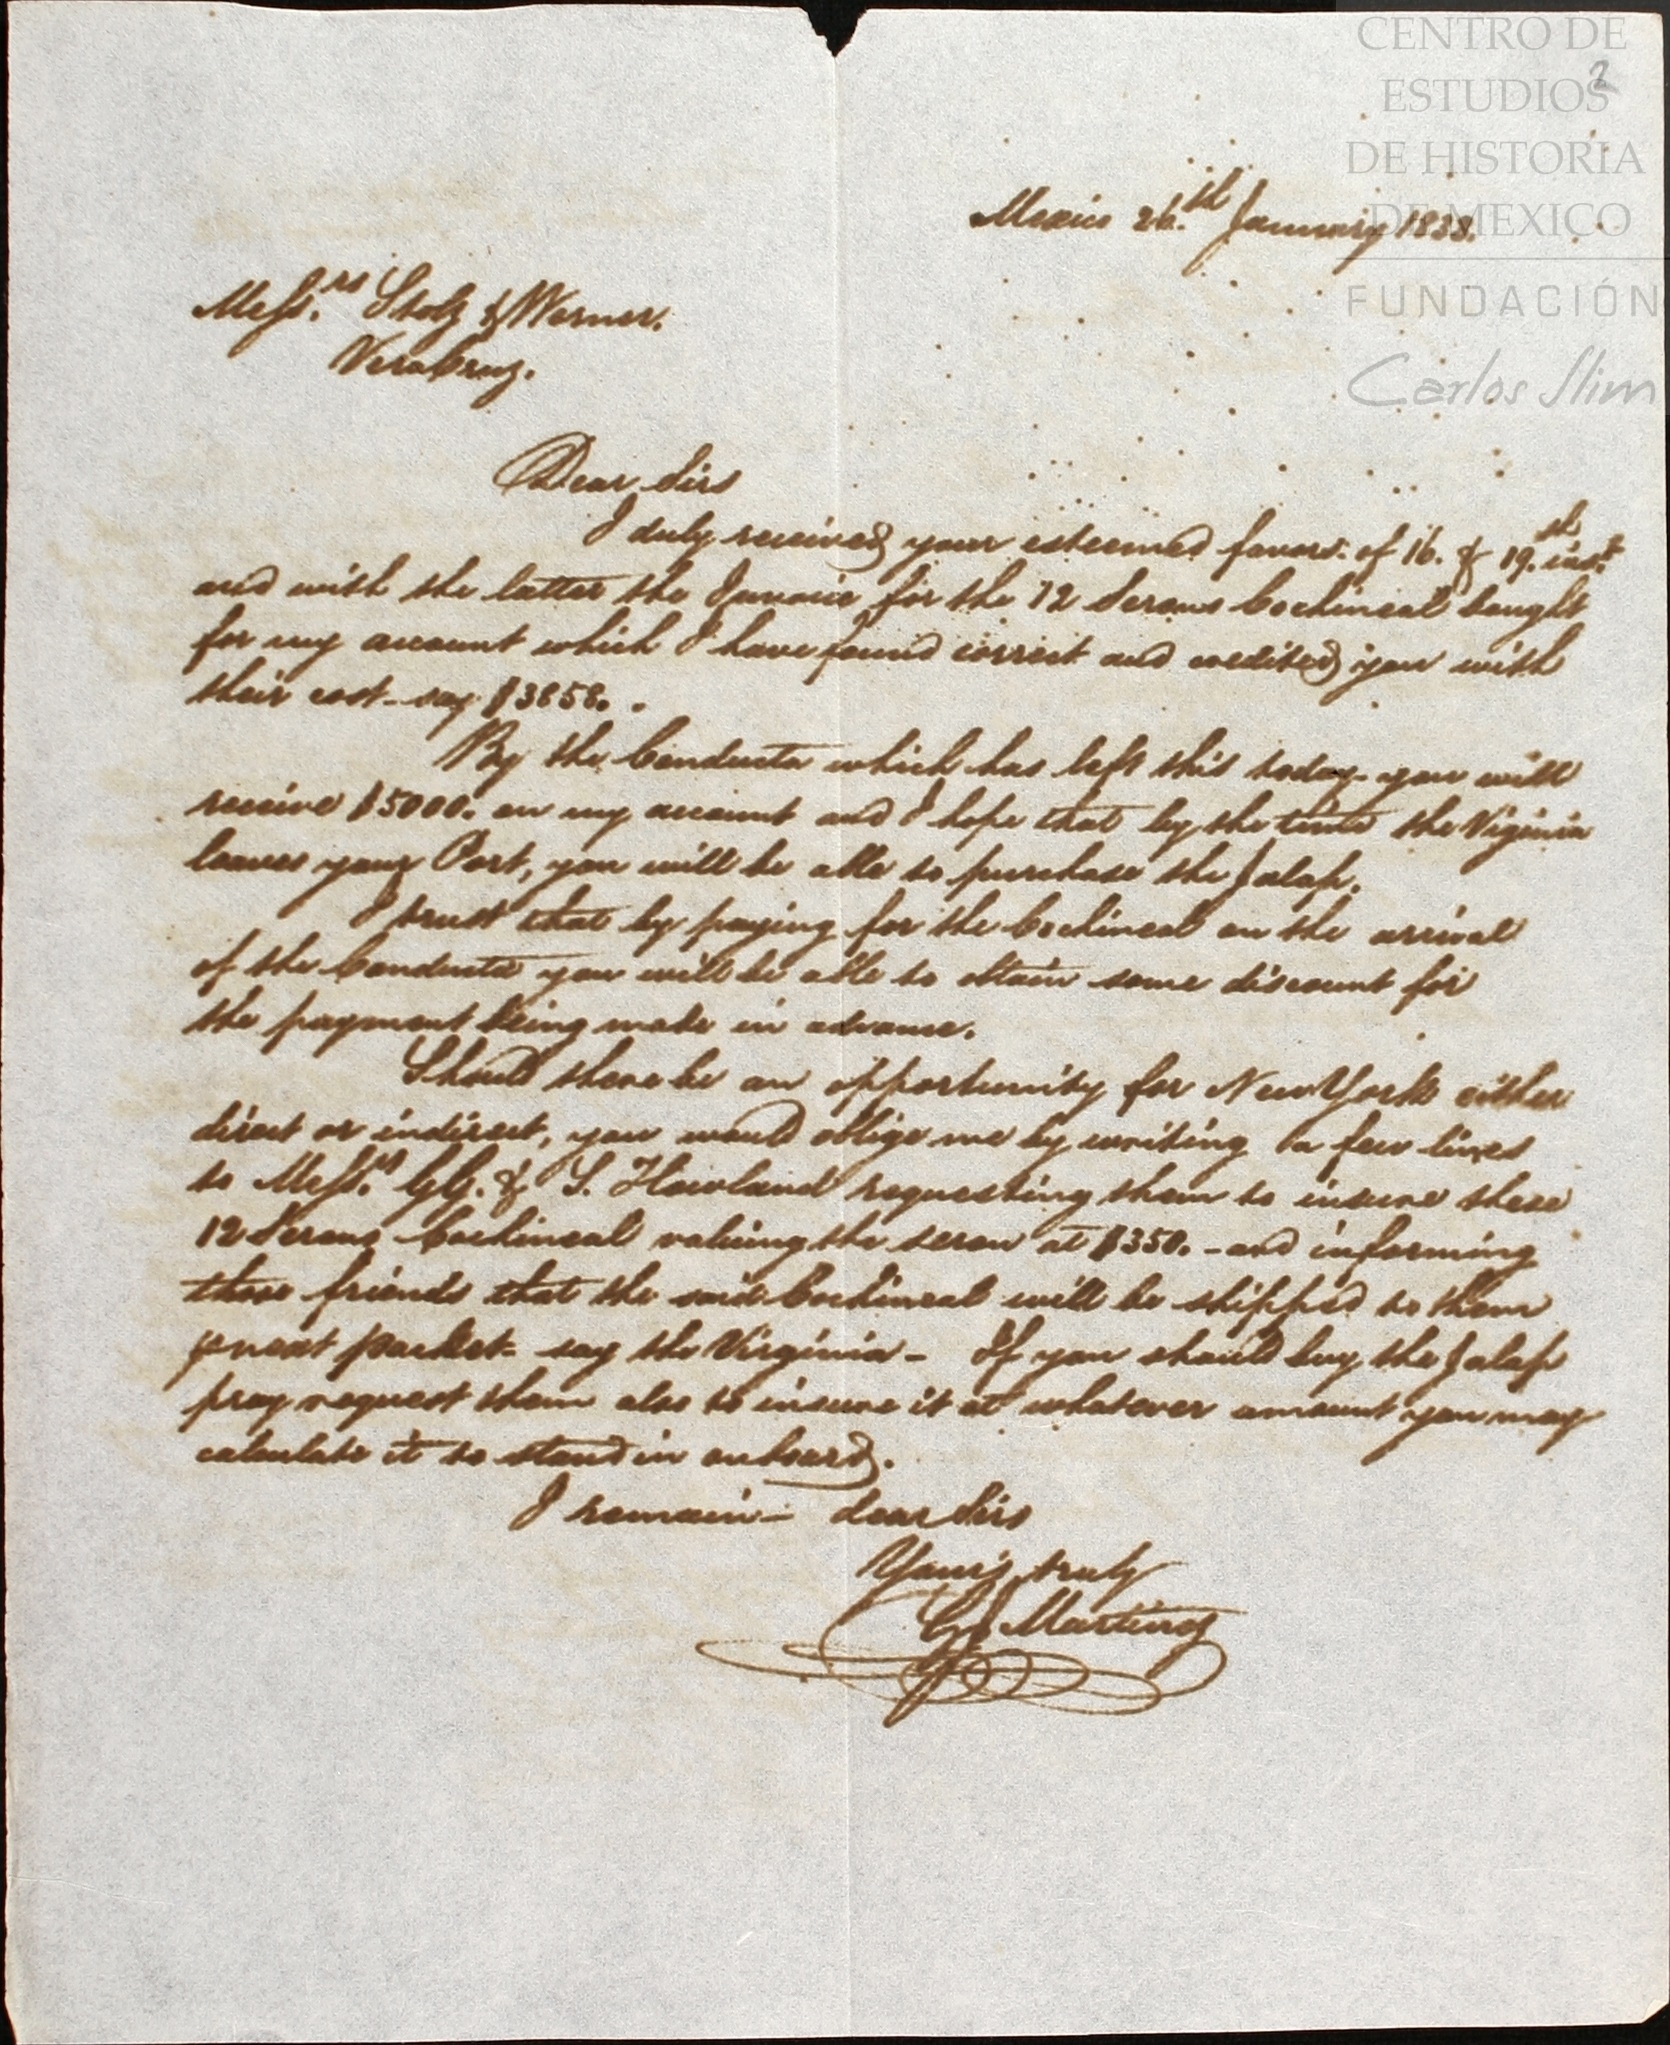 CENTRO DE
ESTUDIOS
DE HISTORIA
DE MEXICO
FUNDACIÓN
Carlos Slim
2
Mexico 26.th January 1838.
Mess.rs Stolz & Werner.
VeraCruz.
Dear Sirs
I duly received your esteemed favors of 16. & 19.th inst.
and with the latter the Invoice for the 12 Serons Cochineal bought
for my account which I have found correct and credited you with
their cost - say $3858..
By the Conducta which has left this today - you will
receive $5000. on my account and I hope that by the time the Viginia
leaves your Port, you will be able to purchase the Jalap.
I trust that by paying for the Cochineal on the arrival
of the Conducta you will be able to obtain some discount for
the payment being made in advance.
Should there be an opportunity for NewYork either
direct or indirect, you would oblige me by writing a few lines
to Mess.rs GG. & S. Howland requesting them to insure these
12 Serons Cochineal valuing the seron at $350. - and informing
those friends that the said Cochineal will be shipped to them
p next packet - say the Virginia - If you should buy the Jalap
pray request them also to insure it at whatever amount you may
calculate it to stand in on board.
I remain - dear Sirs
Yours truly
Martinez